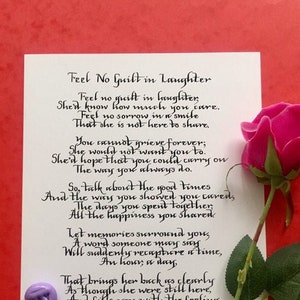 Feel No Guilt in Laughter
Feel no guilt in laughter,
She'd know how much you care.
Feel no sorrow in a smile
That she is not here to share.
You cannot grieve forever;
She would not want you to.
She'd hope that you could carry on
The way you always do.
So, talk about the good times
And the way you showed you cared,
The days you spent together,
All the happiness you shared.
Let memories surround you,
A word someone may say
Will suddenly recapture a time,
An hour, a day,
That brings her back as clearly
As though she were still here,